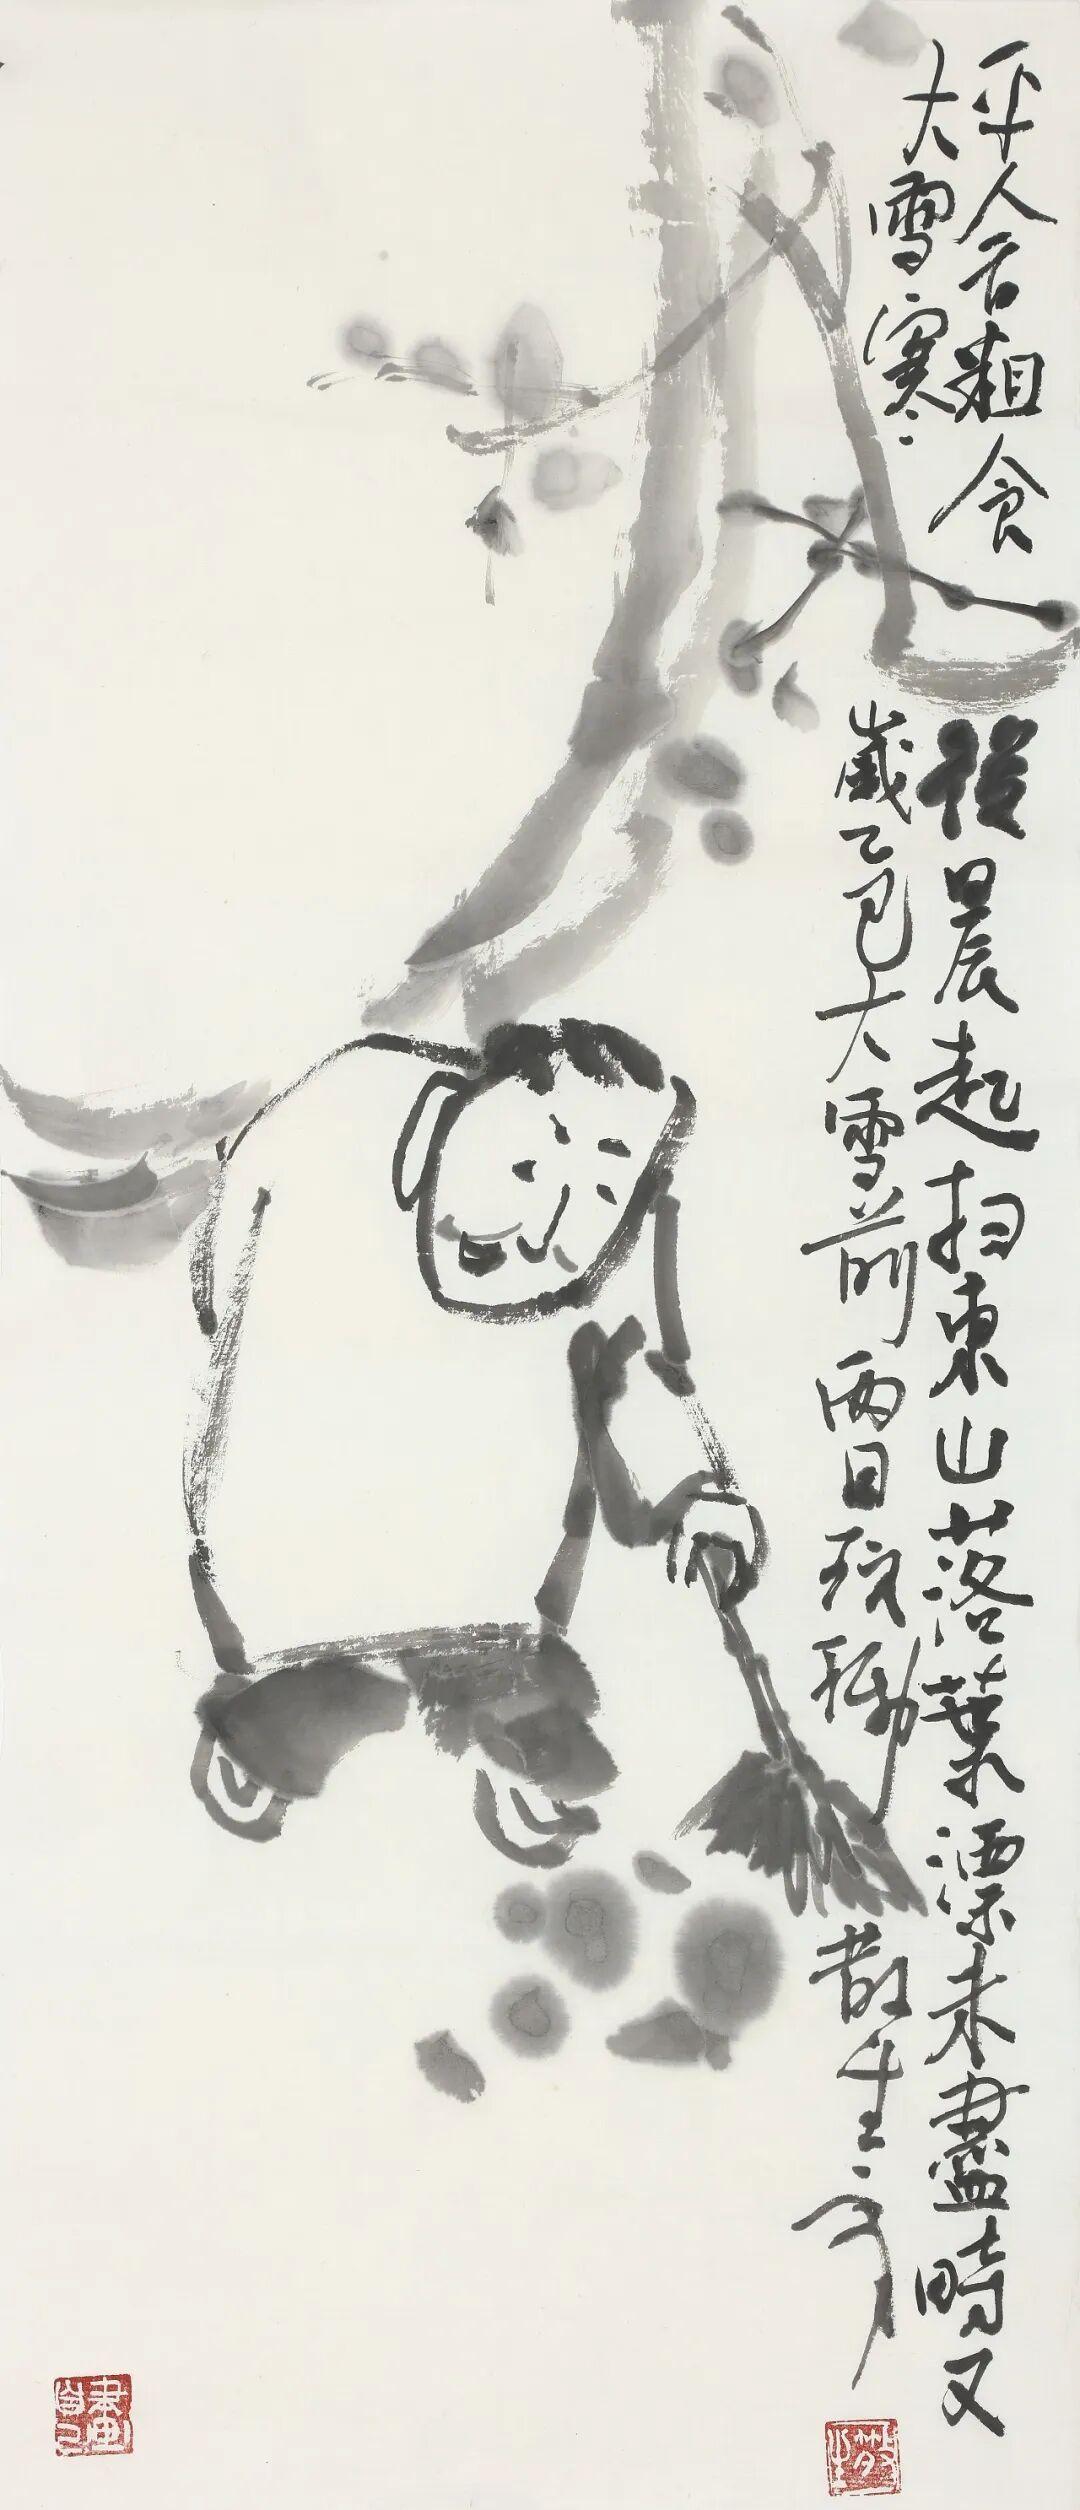 平人粗食晨起扫東山落葉漂未盡時又
大雪寒歲乙巳大雪前兩日散生